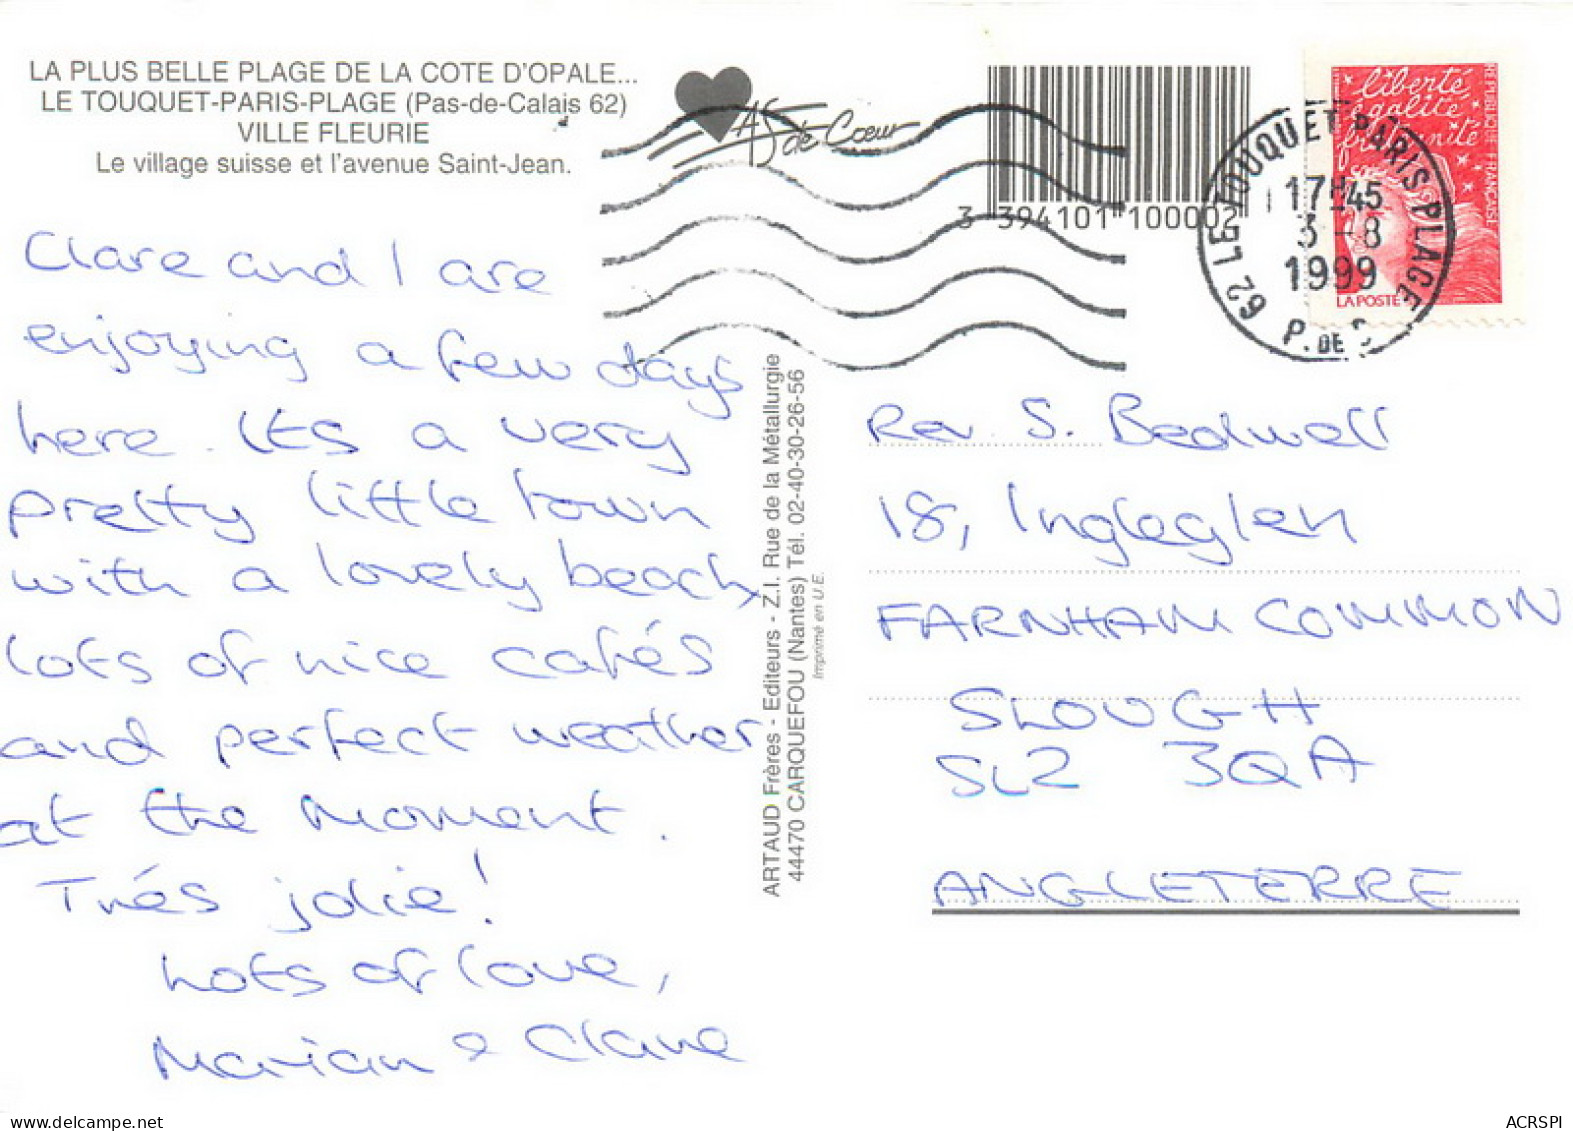 LA PLUS BELLE PLAGE DE LA COTE D'OPALE...
LE TOUQUET-PARIS-PLAGE (Pas-de-Calais 62)
VILLE FLEURIE
Le village suisse et l'avenue Saint-Jean.
AS de Cœur
3 394101 100002
liberté
égalité
fraternité
RÉPUBLIQUE FRANÇAISE
LA POSTE
62 LE TOUQUET PARIS PLAGE
17H45
3-8
1999
P. DE C
Clare and I are
enjoying a few days
here. Its a very
pretty little town
with a lovely beach,
lots of nice cafés
and perfect weather
at the moment.
Trés jolie!
Lots of love,
Marian & Clare
ARTAUD Frères - Editeurs - Z.I. Rue de la Métallurgie
44470 CARQUEFOU (Nantes) Tél. 02-40-30-26-56
Imprimé en U.E.
Rev. S. Bedwell
18, Ingleglen
FARNHAM COMMON
SLOUGH
SL2 3QA
ANGLETERRE
www.delcampe.net
ACRSPI